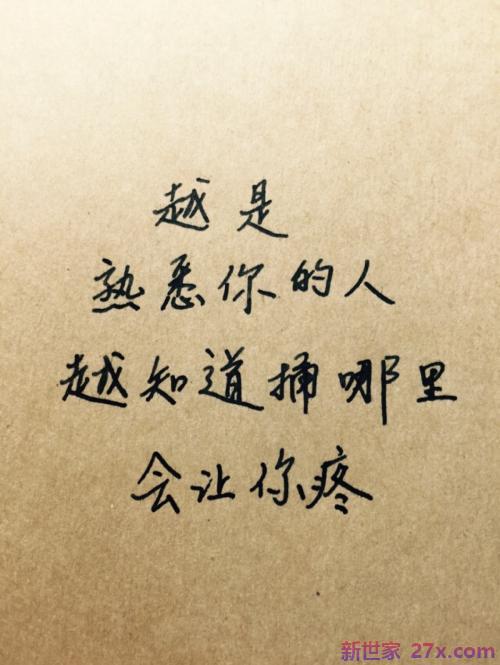 越是
熟悉你的人
越知道捅哪里
会让你疼
新世家 27x.com